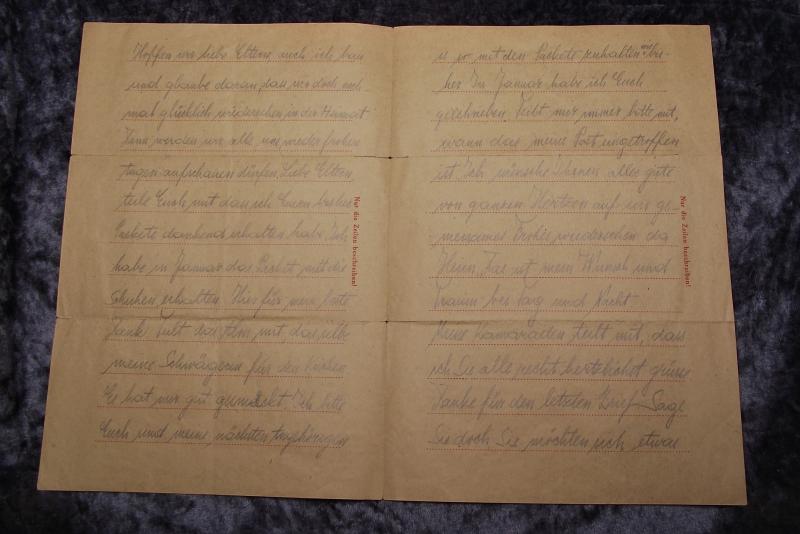 Hoffen wir liebe Eltern auch ich bau
und glaube daran, dass wir doch ein
mal glücklich wiedersehen in der Heimat
Dann werden wir alle, uns wieder frohen
augen aufschauen dürfen. Liebe Eltern
teile Euch mit das ich Euren
Packete dankend erhalten habe. Ich
habe in Januar das Packet mit die
Schuhen erhalten. Hier für mein beste
Dank. Teilt das Ihm mit, das
meine Schwägerin für den Kuchen
Es hat mir gut gemeckt. Ich bitte
Euch und meine nächsten Angehörigen
Nur die Zeilen beschreiben!
mit den Packete zuhalten
her. In Januar habe ich Euch
geschrieben. Teilt mir immer bitte mit,
wann das meine Post eingetroffen
ist. Ich wünsche Ihnen alles gute
von ganzen Hertzen auf ein ge
meinsames Frohes wiedersehen da
Heim, Das ist mein Wunsch und
Traum bei Tag und Nacht
Meine Kamaraden teilt mit, dass
ich Sie alle recht hertzlichst grüsse
Danke für den letzten Brief. Sage
Sie doch Sie möchten sich etwas
Nur die Zeilen beschreiben!